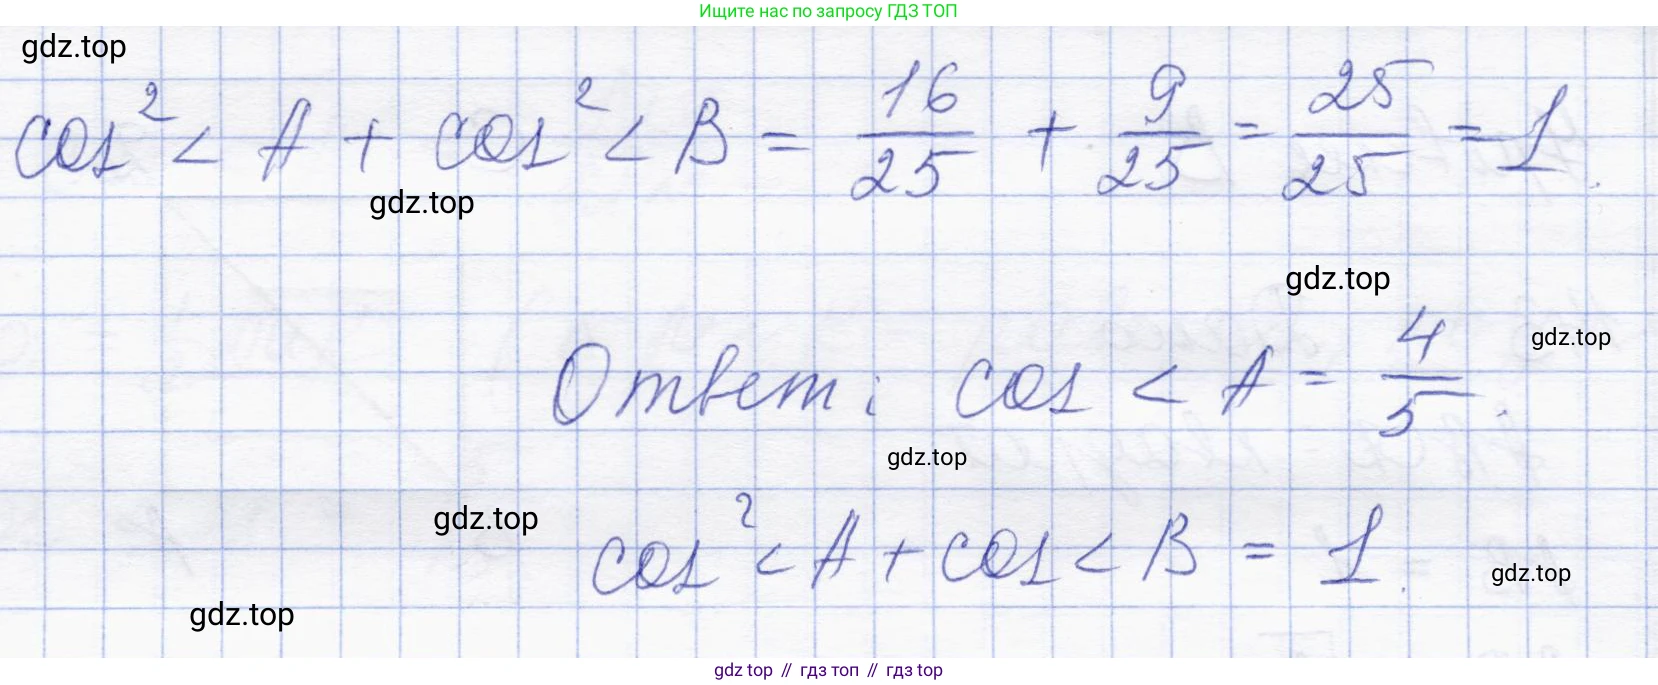 Ищите нас по запросу ГДЗ ТОП
gdz.top
cos² < A + cos² < B = 16/25 + 9/25 = 25/25 = 1.
gdz.top
gdz.top
gdz.top
Ответ: cos < A = 4/5.
gdz.top
gdz.top
cos² < A + cos < B = 1.
gdz.top
gdz.top
gdz top // гдз топ // гдз top